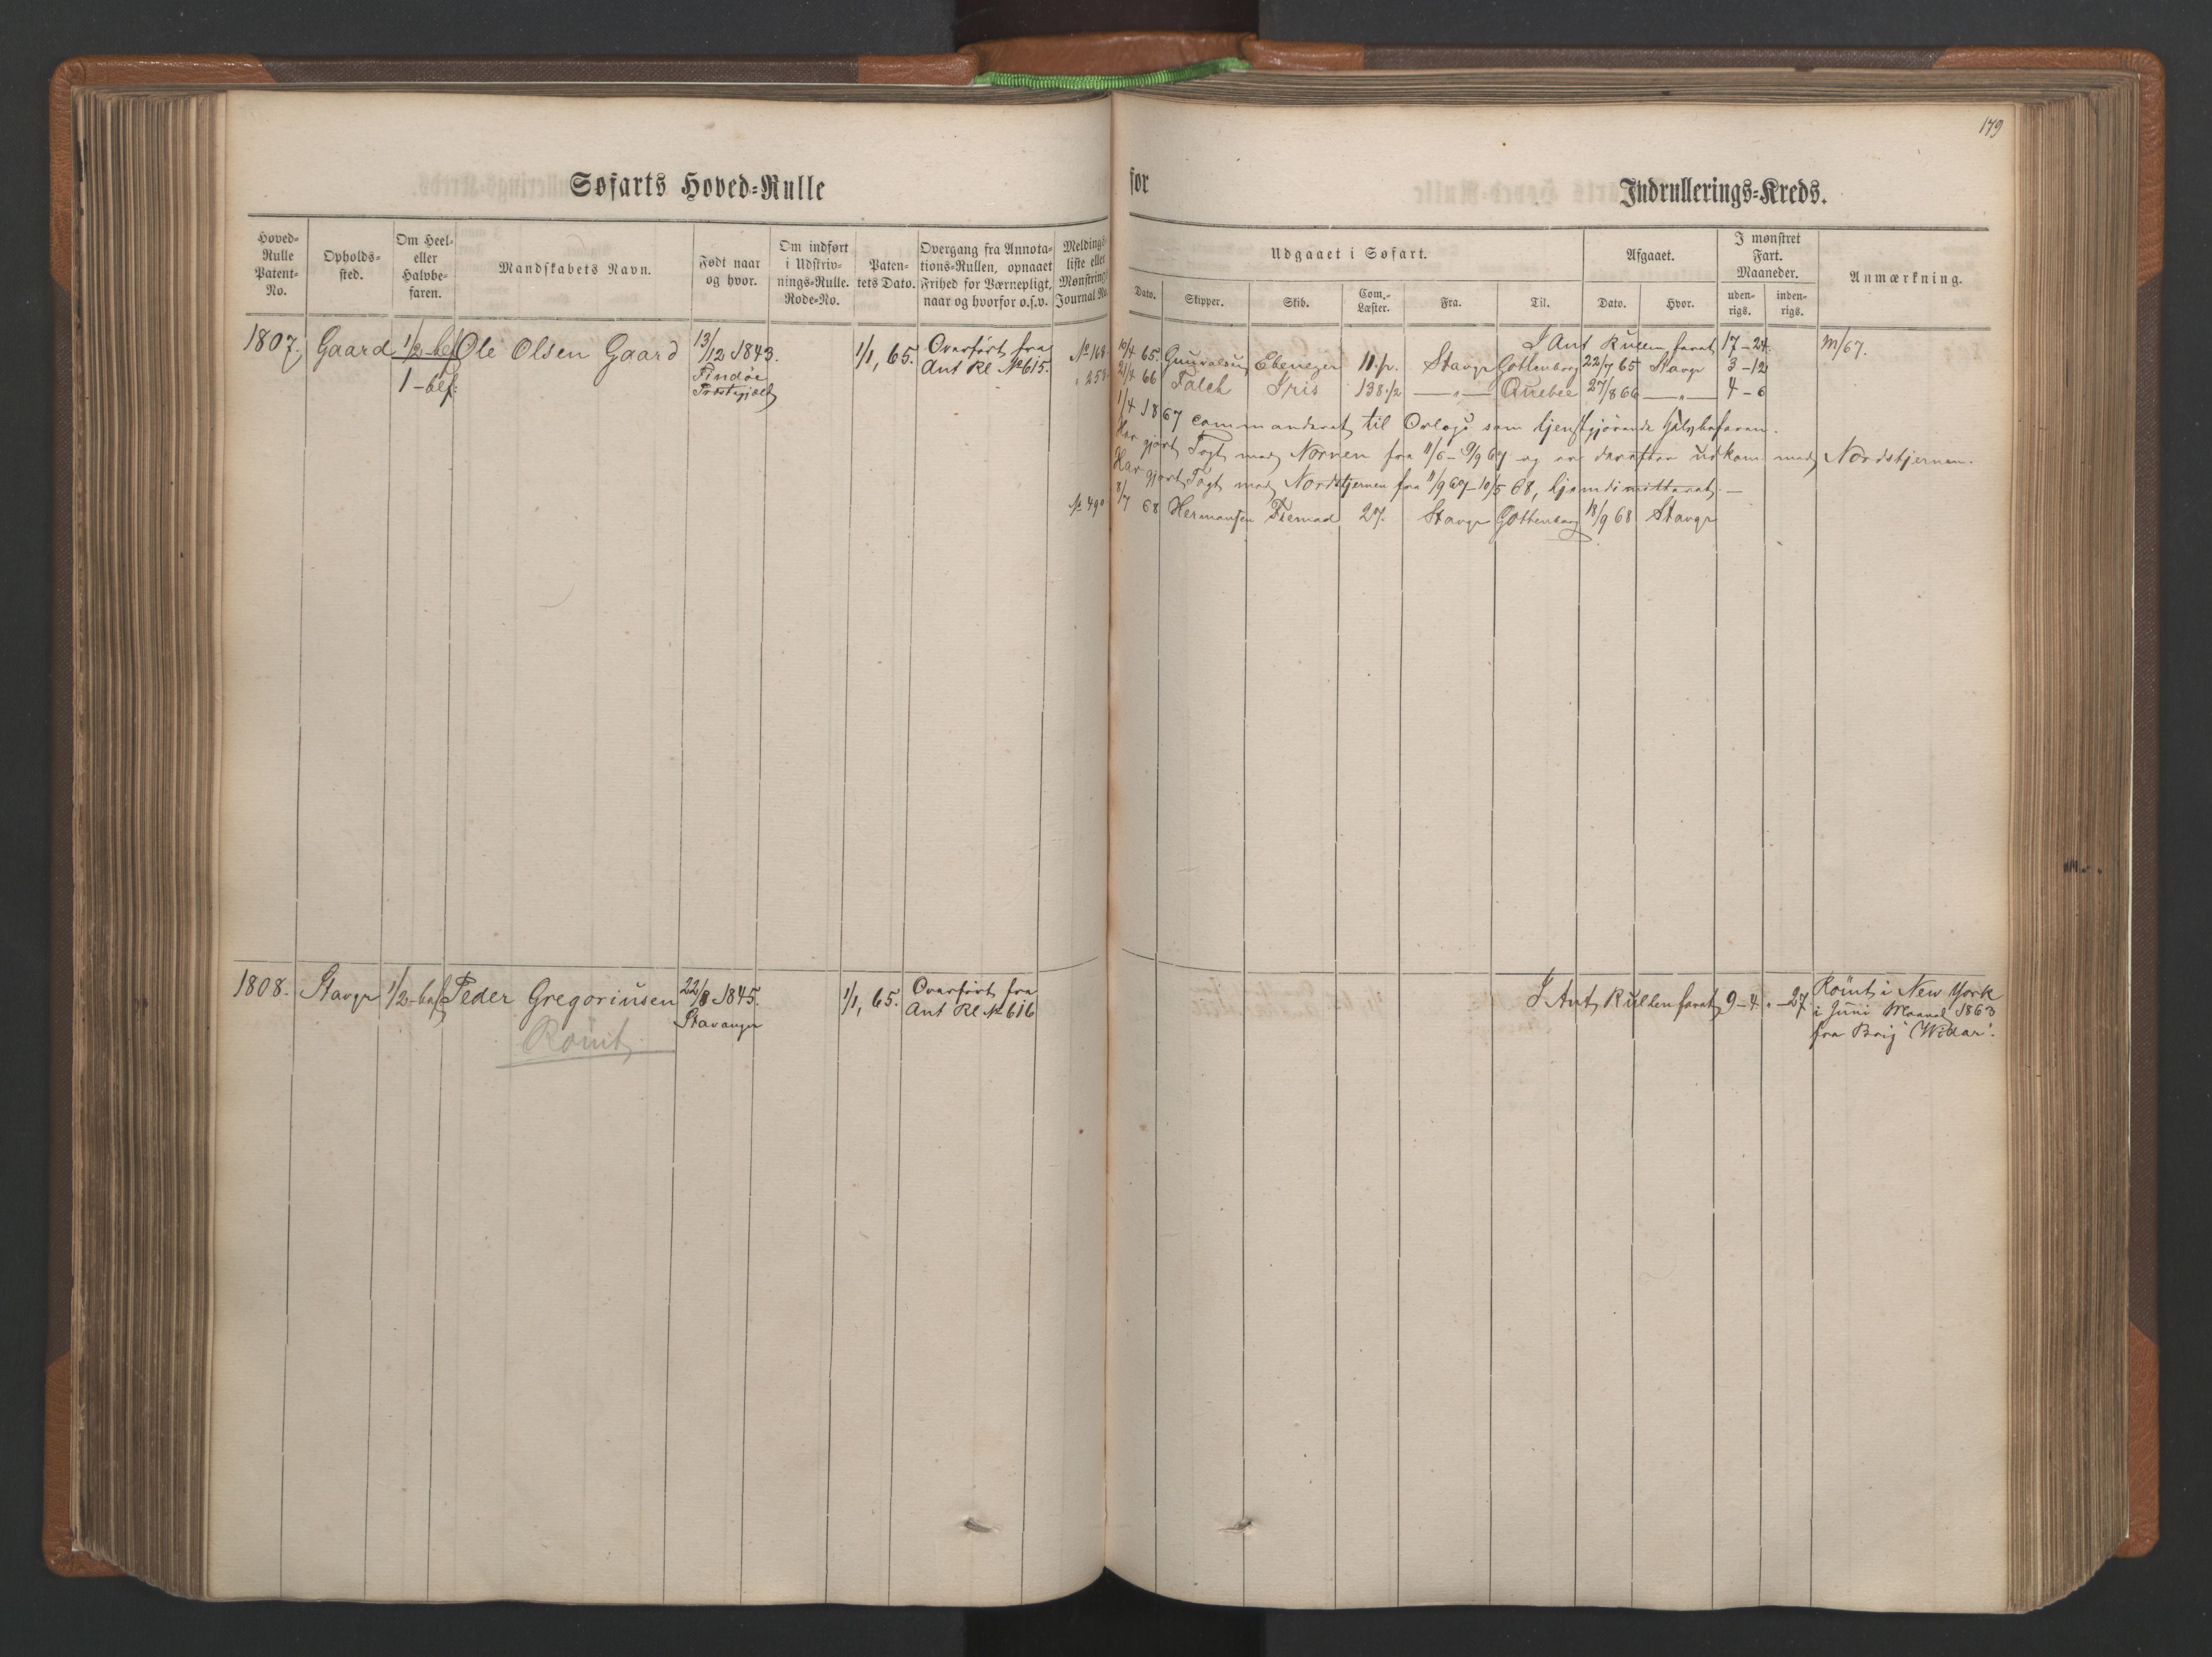 179
Søfarts Hoved-Rulle
for
Indrullerings-Kreds.
Hoved-Rulle Patent-No.
Opholds-sted.
Om Heel- eller Halvbe-faren.
Mandskabets Navn.
Født naar og hvor.
Om indført i Udskriv-nings-Rulle. Rode-No.
Paten-tets Dato.
Overgang fra Annota-tions-Rullen, opnaaet Frihed for Værnepligt, naar og hvorfor o.s.v.
Meldings-liste eller Mønstrings Journal No.
Udgaaet i Søfart.
Dato.
Skipper.
Skib.
Com.-Læster.
Fra.
Til.
Afgaaet.
Dato.
Hvor.
I mønstret Fart. Maaneder.
uden-rigs.
inden-rigs.
Anmærkning.
1807. Gaard 1/2-bef Ole Olsen Gaard 13/12 1843. 1/1, 65. Overført fra
1-bef: Findøe Ant Rl No 615.
Præstegjæld
I Ant Rullen faret 17-24. M/67.
No 168 10/4 65. Ebenezer 11. Stavgr Gottenborg 22/7 65 Stavgr 3-12
" 258 21/4 66 Falch Iris 138 1/2 —"— Quebec 27/8 66 —"— 4-6
1/4 1867 commanderet til Orlogs som tjenstgjørende Halvbefaren.
Har gjort Togt med Nornen fra 11/6 - 9/9 67 og er derefter udkom: med Nordstjernen.
Har gjort Togt med Nordstjernen fra 11/9 67 - 10/5 68, hjemdimitteret. —
No 490 8/7 68 Hermansen Fremad 27. Stavgr Gottenborg 18/9 68 Stavgr
1808. Stavgr 1/2-bef Peder Gregoriusen 22/8 1845. 1/1, 65. Overført fra
Stavanger Ant Rl No 616
Römt
I Ant Rullen faret 9-4. " -27 Römt i New York
i Juni Maaned 1863
fra Brig "Widar".